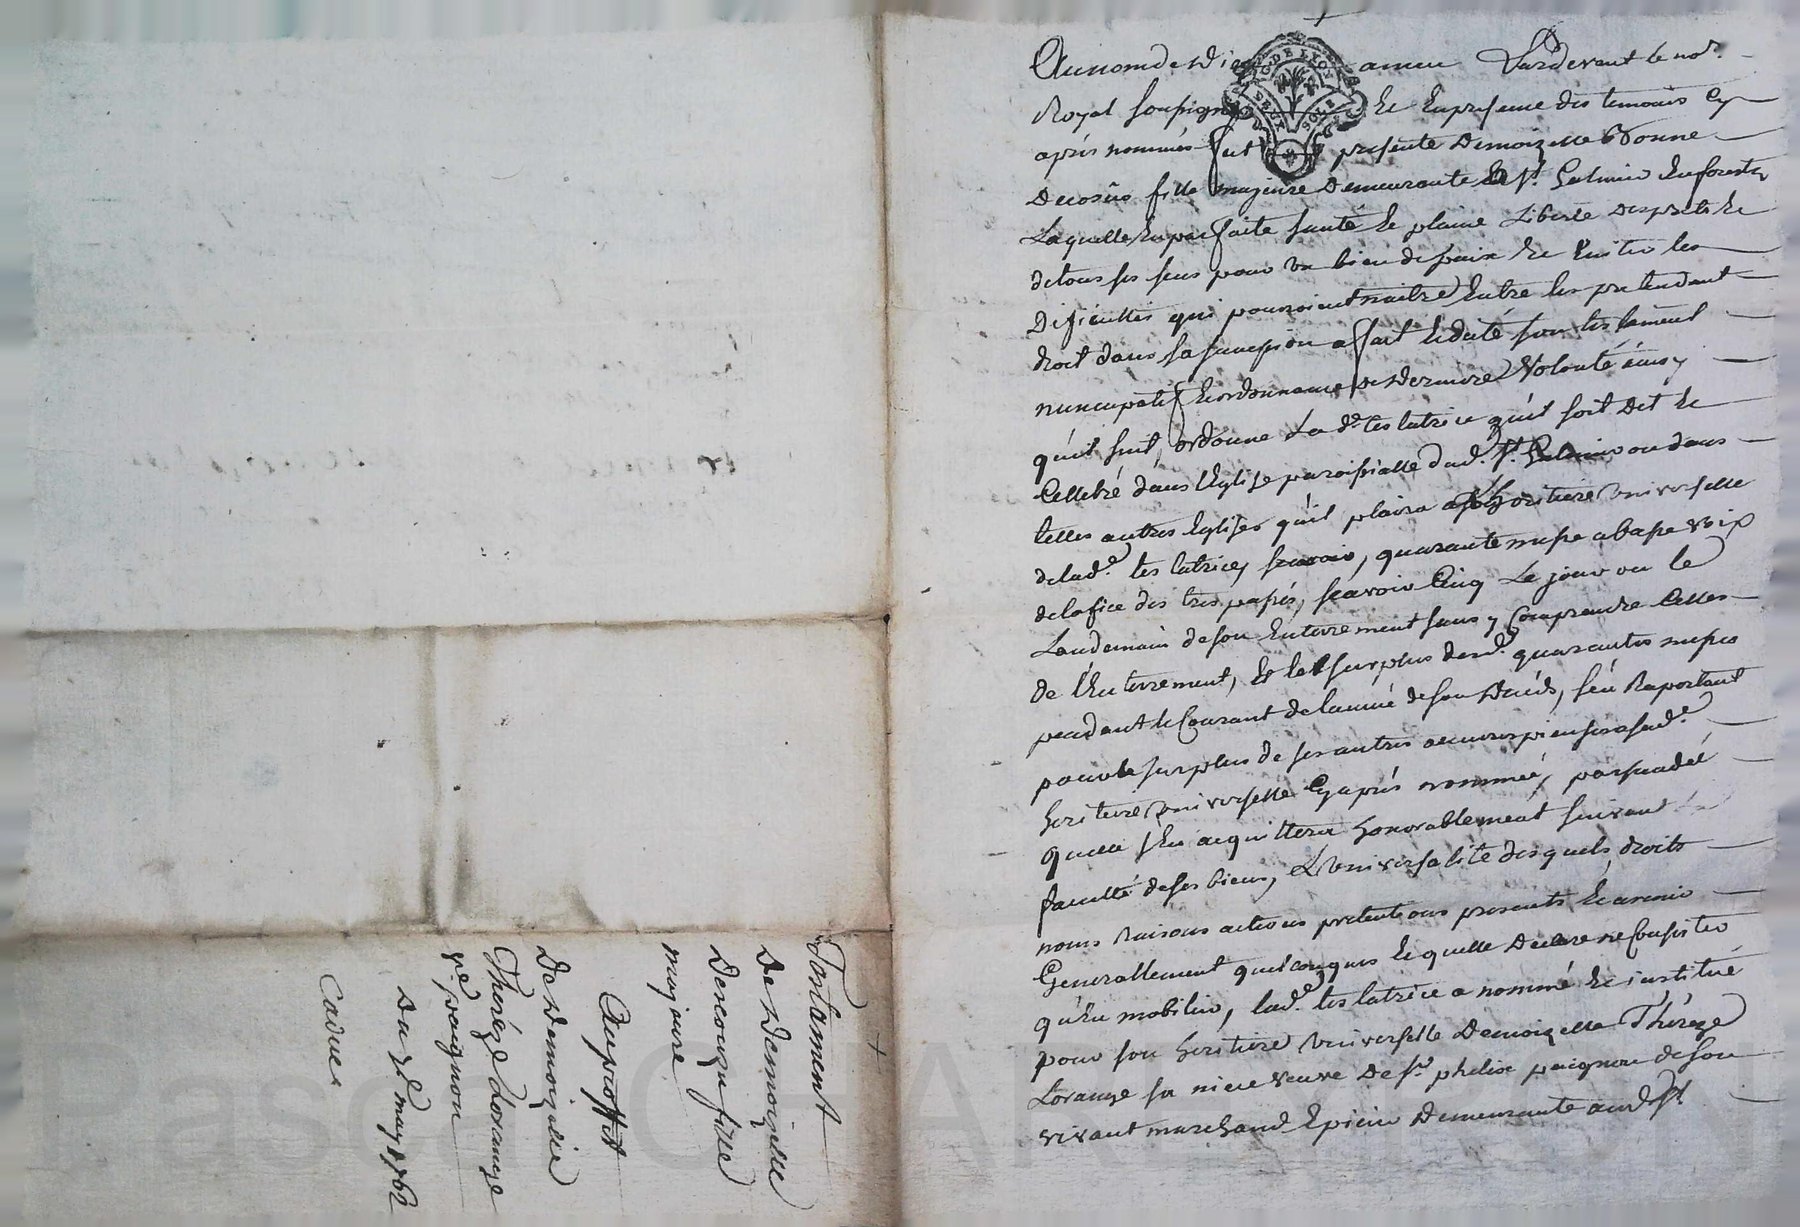 Testament
De Demoizelle
Descouzu fille
majeure
Auproffit
De Demoizelle
Therèze Lorange
ve. paignon
Du 2e. may 1762
Caduc
Au nom de Dieu amen Pardevant le nore.
Royal soussigné Et En presence des temoins Cy
après nommés fut presente Demoizelle Bonne
fille majeure Demeurante St. Galmier En forestz
Laquelle En parfaite santé Et plaine Liberté desprits Et
de tous ses sens pour un bien de paix Et Eviter les
Dificultés qui pouroient naitre Entre les pretendant
droit dans sa succession a fait Et dicté son testament
nuncupatif Et ordonnance de Derniere Volonté ainsy
quil suit, ordonne La de. testatrice quil soit Dit Et
Cellebré dans lEglise paroissialle dud. St. Galmier ou dans
telles autres Eglises quil plaira a son heritiere Universelle
de lade. testatrice, scavoir, quarante messe a basse voix
de lofice des trespassés, scavoir Cinq Le jour ou le
Landemain de son Enterrement sans y Comprendre Celles
de lEnterrement, Et le surplus desd. quarantes messes
pendant le Courant de lannée de son Decés, sen Raportant
pour le surplus de ses autres oeuvres pieuses a sade.
heritiere Universelle Cy après nommée, persuadée
quelle sen acquittera honorablement suivant
faculté de ses biens, LUniversalité desquels, droits
noms Raisons actions pretentions presents Et avenir
Generallement quelconques lequelle Declare ne Consister
quEn mobilier, lade. testatrice a nommé Et institué
pour son heritiere Universelle Demoizelle Thérèze
Lorange sa niece veuve De Sr. phelix paignon de son
vivant marchand Epicier Demeurante aud. St.